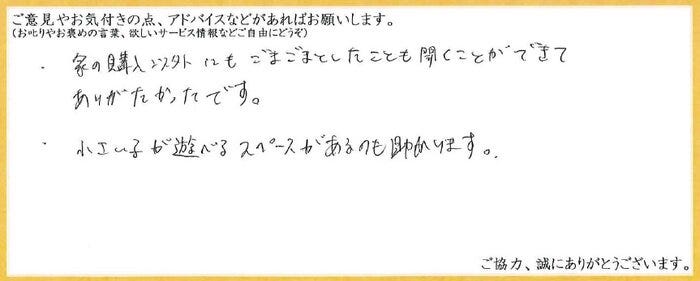 ご意見やお気付きの点、アドバイスなどがあればお願いします。
(お叱りやお褒めの言葉、欲しいサービス情報などご自由にどうぞ)
・ 家の購入以外にもごまごまとしたことも聞くことができて
ありがたかったです。
・ 小さい子が遊べるスペースがあるのも助かります。
ご協力、誠にありがとうございます。